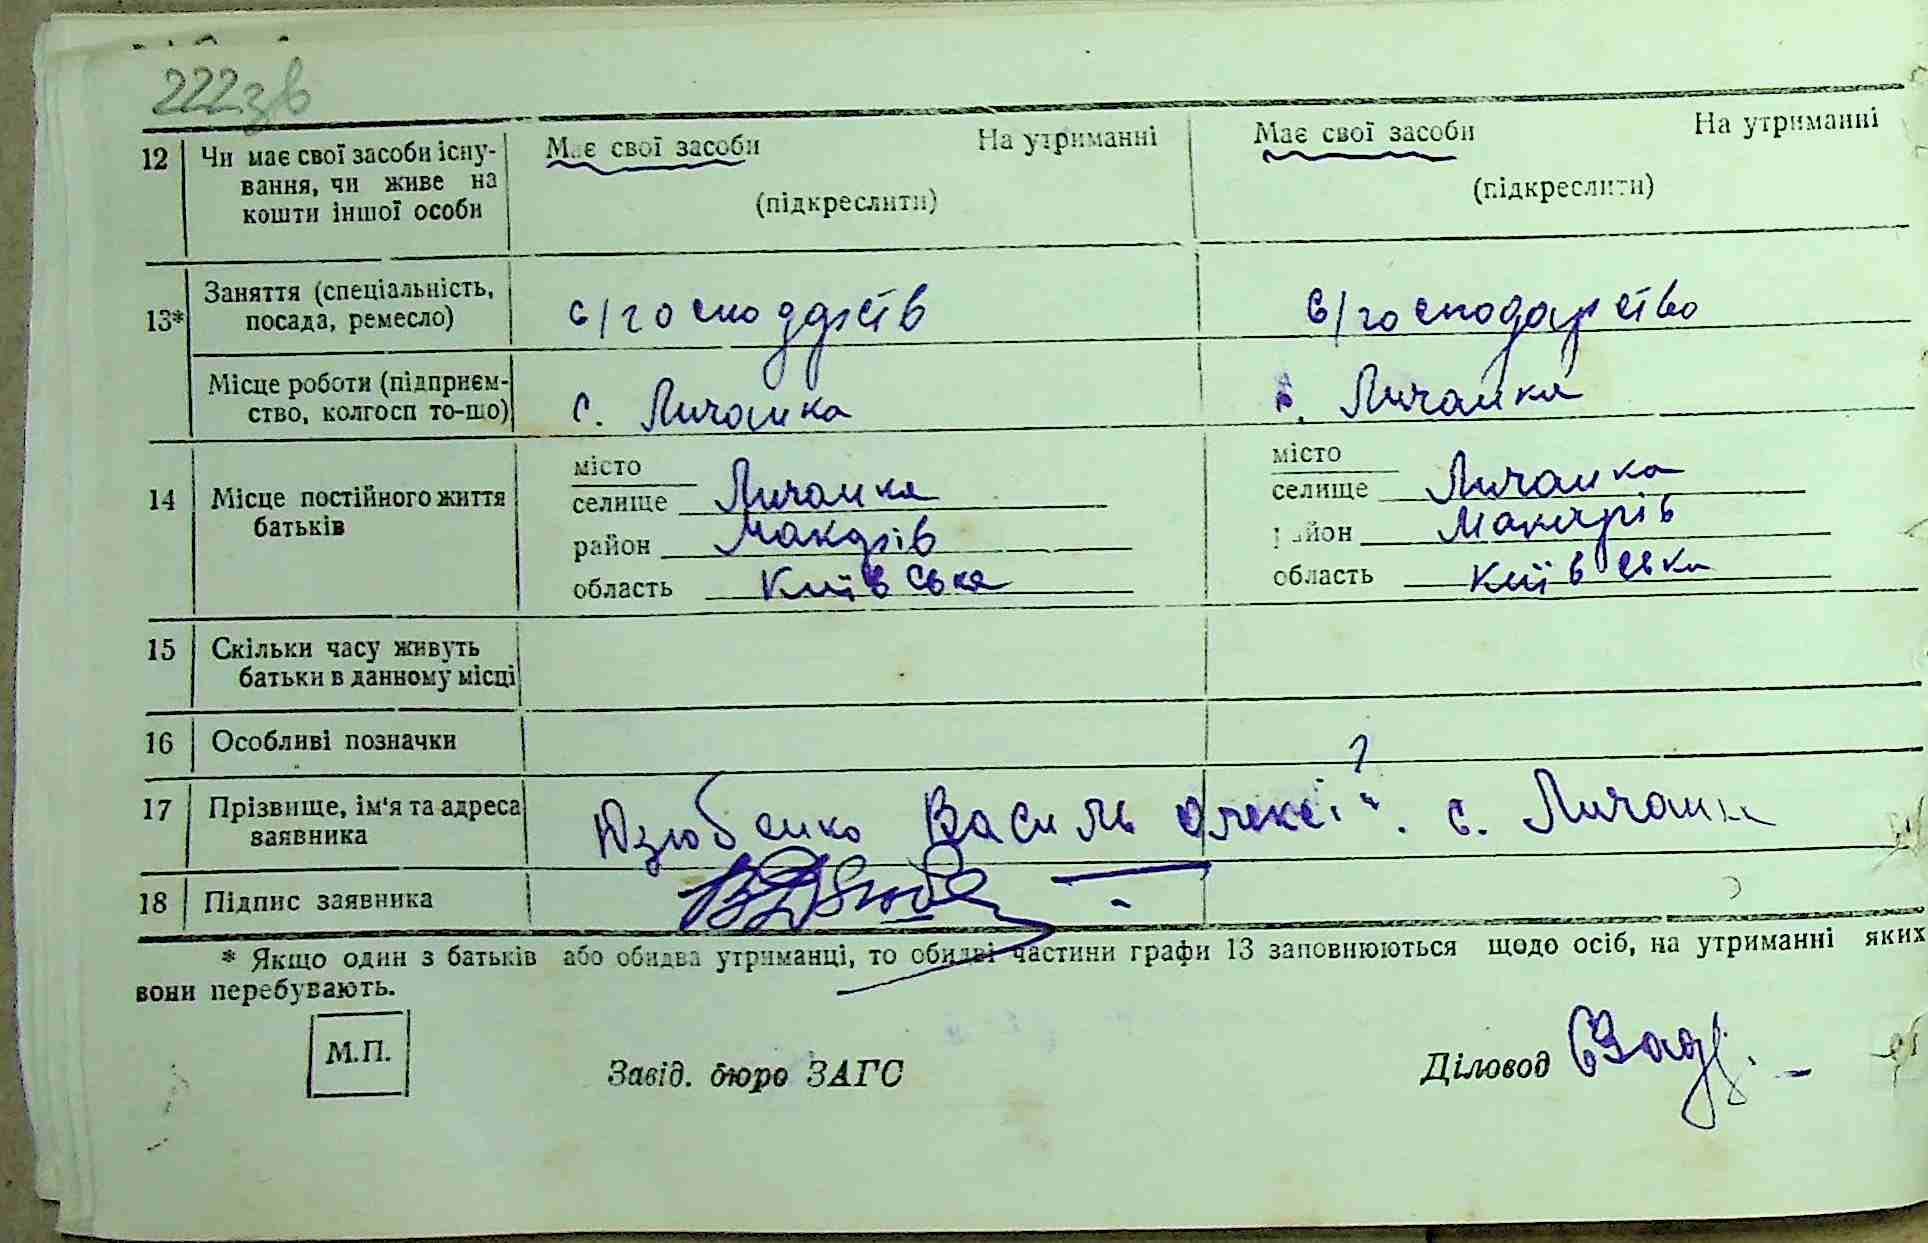 222зв
12 Чи має свої засоби існу- М..є свої засоби На утриманні Має свої засоби На утриманні
вання, чи живе на
кошти іншої особи (підкреслити) (підкреслити)
13* Заняття (спеціальність, с/господарств с/господарство
посада, ремесло)
Місце роботи (підприєм- с. Личанка с. Личанка
ство, колгосп то-що)
14 Місце постійного життя місто місто
батьків селище Личанка селище Личанка
район Макарів район Макарів
область Київська область Київська
15 Скільки часу живуть
батьки в данному місці
16 Особливі позначки
17 Прізвище, ім'я та адреса Дзюбенко Василь Олексій. с. Личанка
заявника
18 Підпис заявника
* Якщо один з батьків або обидва утриманці, то обидві частини графи 13 заповнюються щодо осіб, на утриманні яких
вони перебувають.
М.П.
Завід. бюро ЗАГС Діловод